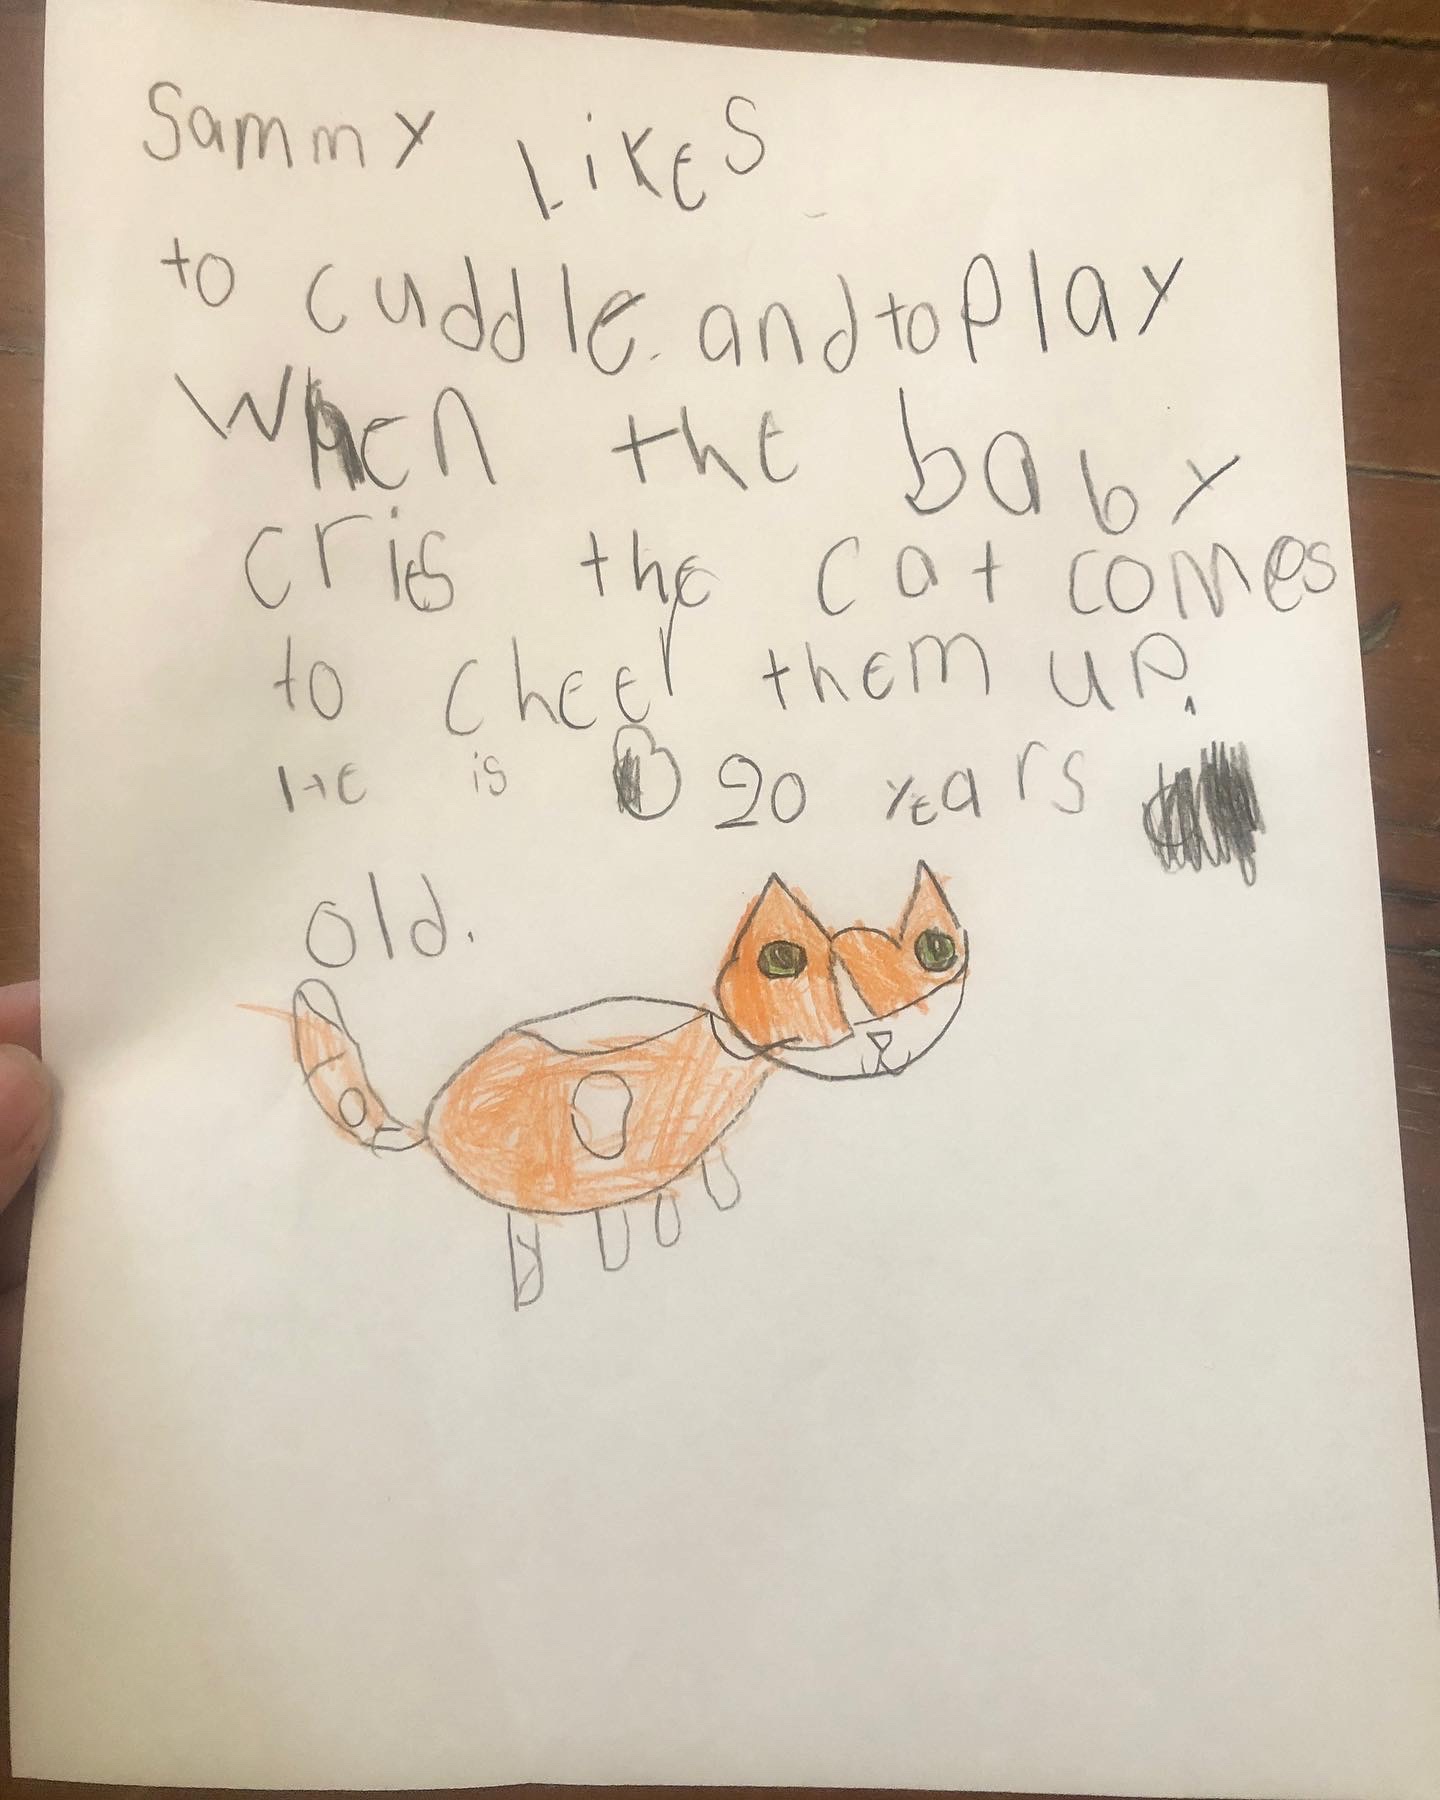 Sammy Likes
to cuddle. and to play
When the baby
cries the cat comes
to cheer them up.
He is 20 years
old.